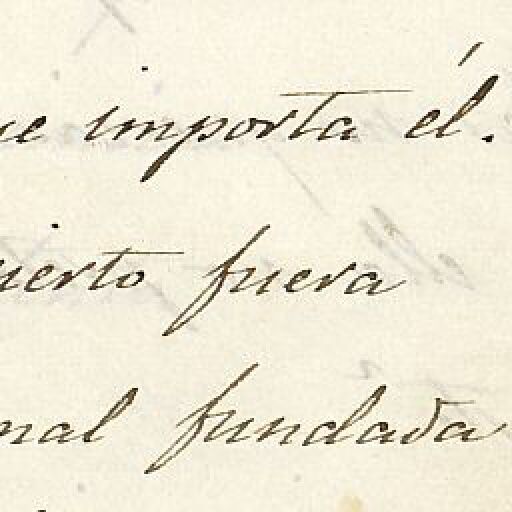 ue importa él.
uierto fuera
nal fundada